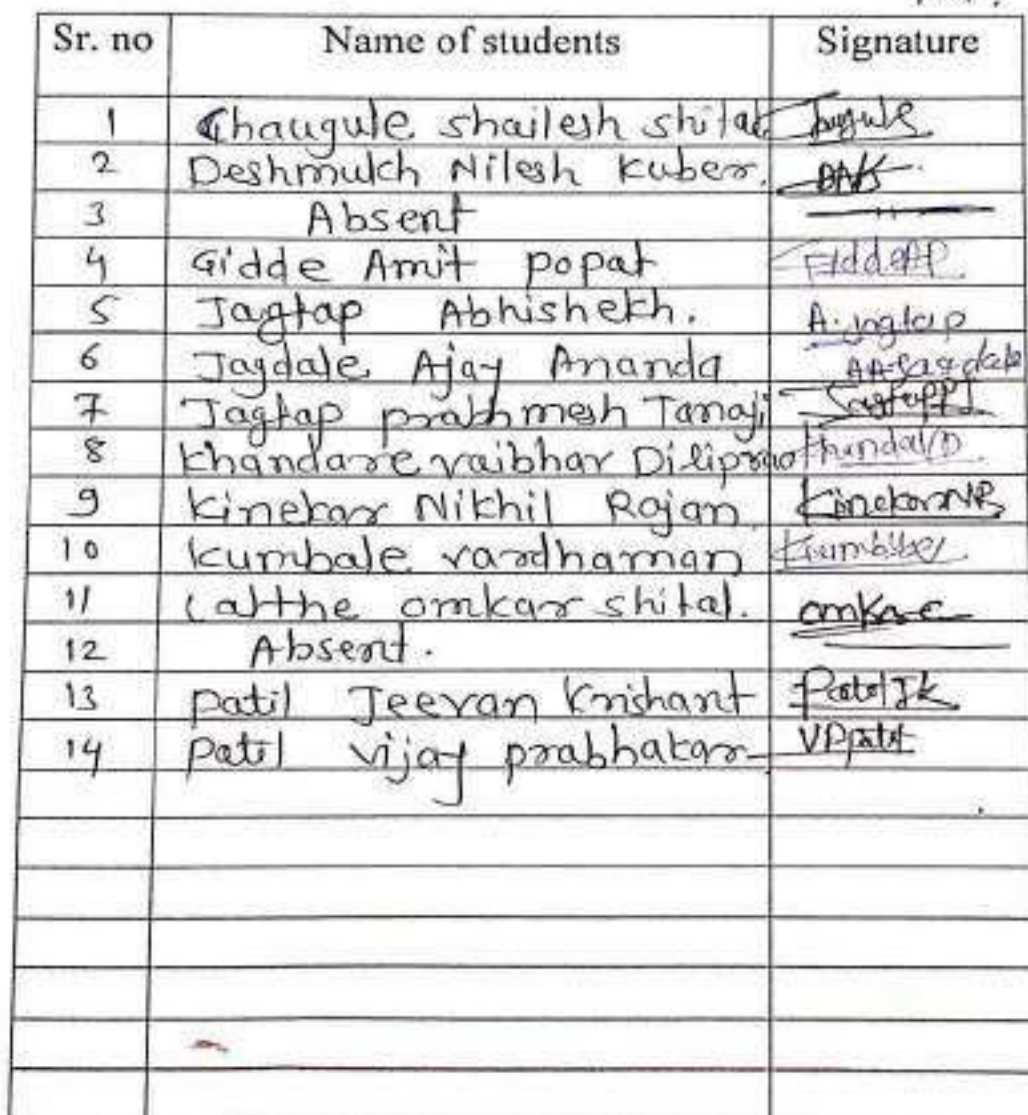 Sr. no Name of students Signature
1 Chaugule shailesh shital
2 Deshmukh Nilesh Kuber.
3 Absent
4 Gidde Amit popat GiddeAP
5 Jagtap Abhishekh. A.jagtap
6 Jagdale Ajay Ananda AA.Jagdale
7 Jagtap prathmesh Tanaji JagtapPT
8 Khandare vaibhav Diliprao
9 Kinekar Nikhil Rajan KinekarNR
10 Kumbale vardhaman
11 Latthe omkar shital. omkar
12 Absent.
13 Patil Jeevan Krishant Patil JK
14 Patil vijay prabhakar VPpatil